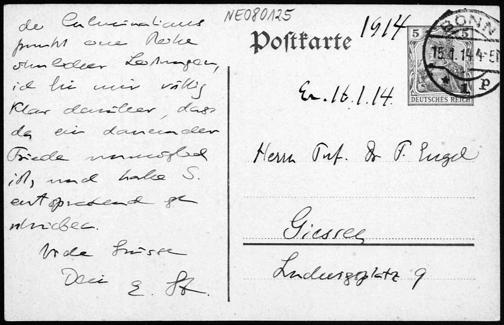 NE080125
1914
Postkarte
5 5
DEUTSCHES REICH
BONN
15.1.14.4-5N
* 1 p
Er. 16.1.14.
Herrn Prof. Dr F. Engel
Giessen
Ludwigsplatz 9
der Culminations
punkt einer Reihe
ähnlicher Leistungen,
ich bin mir völlig
klar darüber, dass
da ein dauernder
Friede unmöglich
ist, und habe S.
entsprechend ge
schrieben.
Viele Grüsse
Dein E. St.